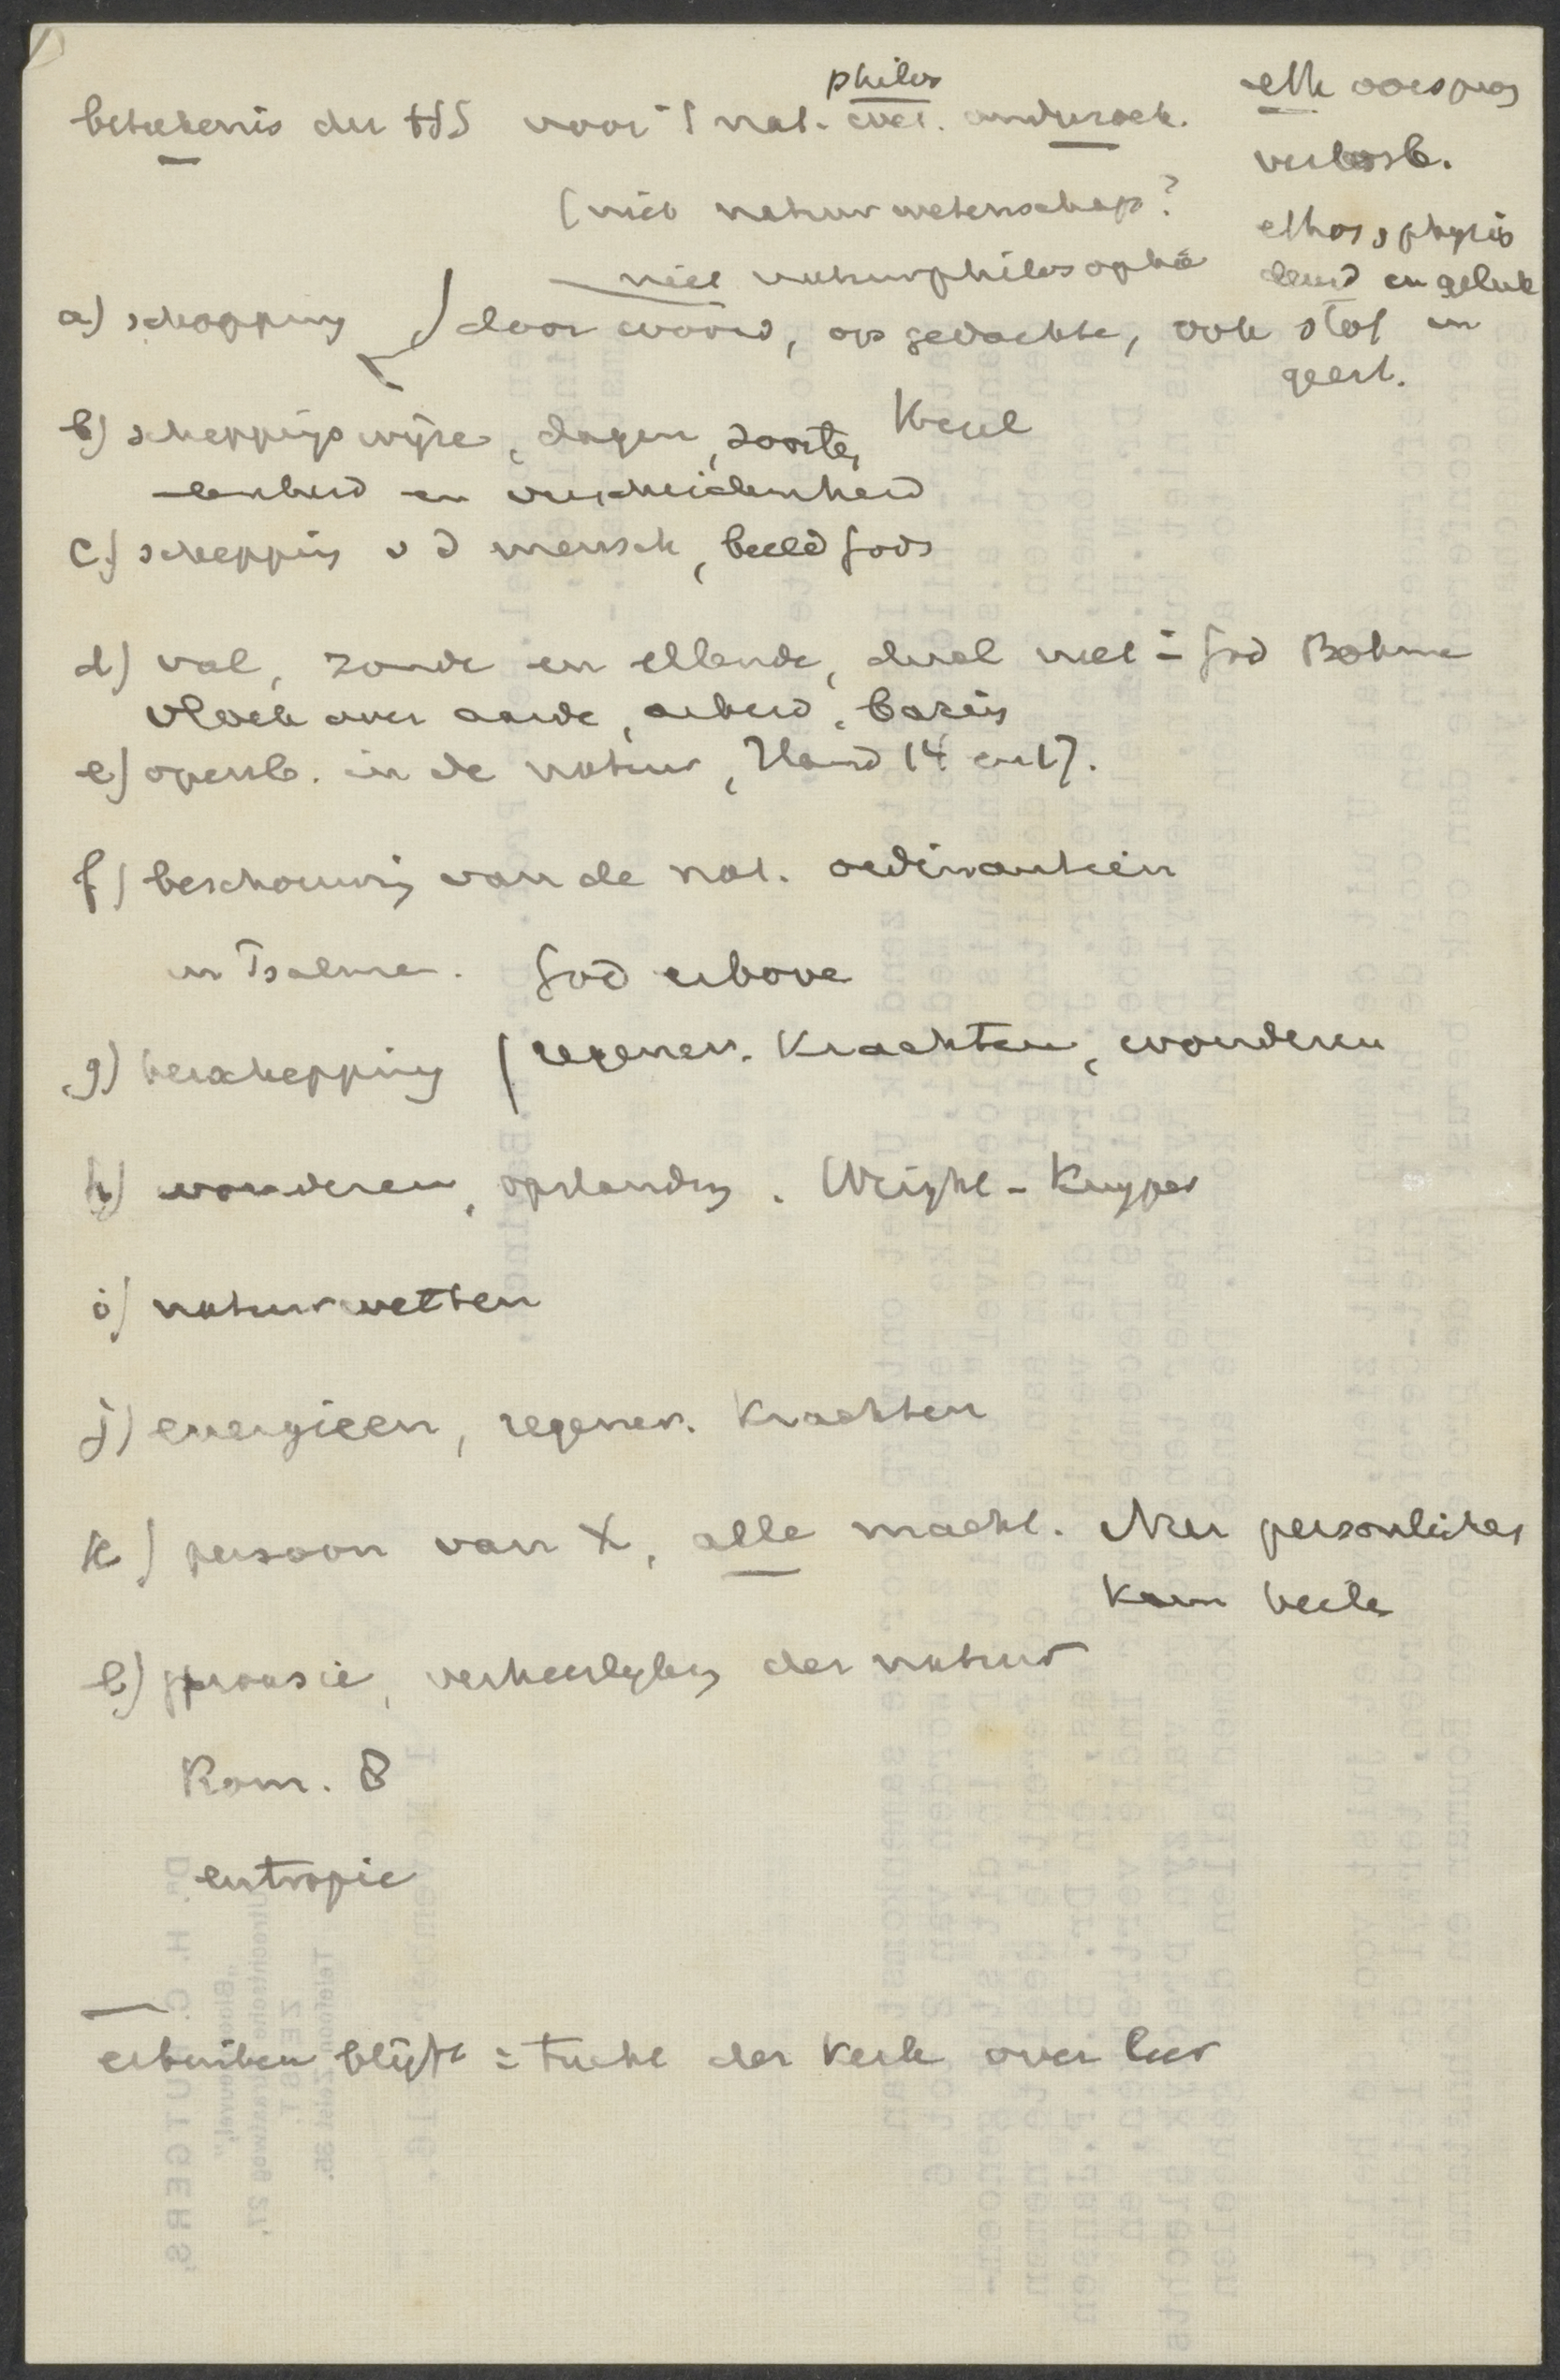 philos
beteekenis der HS voor 't nat. wet. onderzoek.
eth oorsprong
verlossb.
(niet natuurwetenschap?
ethos, physis
niet naturphilosophie
deugd en geluk
a) schepping door woord, op gedachte, ook stof en
geest.
b) scheppingswijze, dagen, soorten
eenheid en verscheidenheid
c) schepping v d mensch, beeld Gods
d) val, zonde en ellende, duivel niet = God Böhme
vloek over aarde, arbeid,
e) openb. in de natuur, Hand 14 en 17.
f) beschouwing van de nat. ordinantiën
in Psalmen. God erboven
g) herschepping (regener. krachten, wonderen
h) wonderen, opstanding. Wright - Kuyper
i) natuurwetten
j) energieen, regener. krachten
k) persoon van X, alle macht. Nur persönliches
kann heilen
l) parousie, verheerlyking der natuur
Rom. 8
entropie
blijft = tucht der kerk over leer